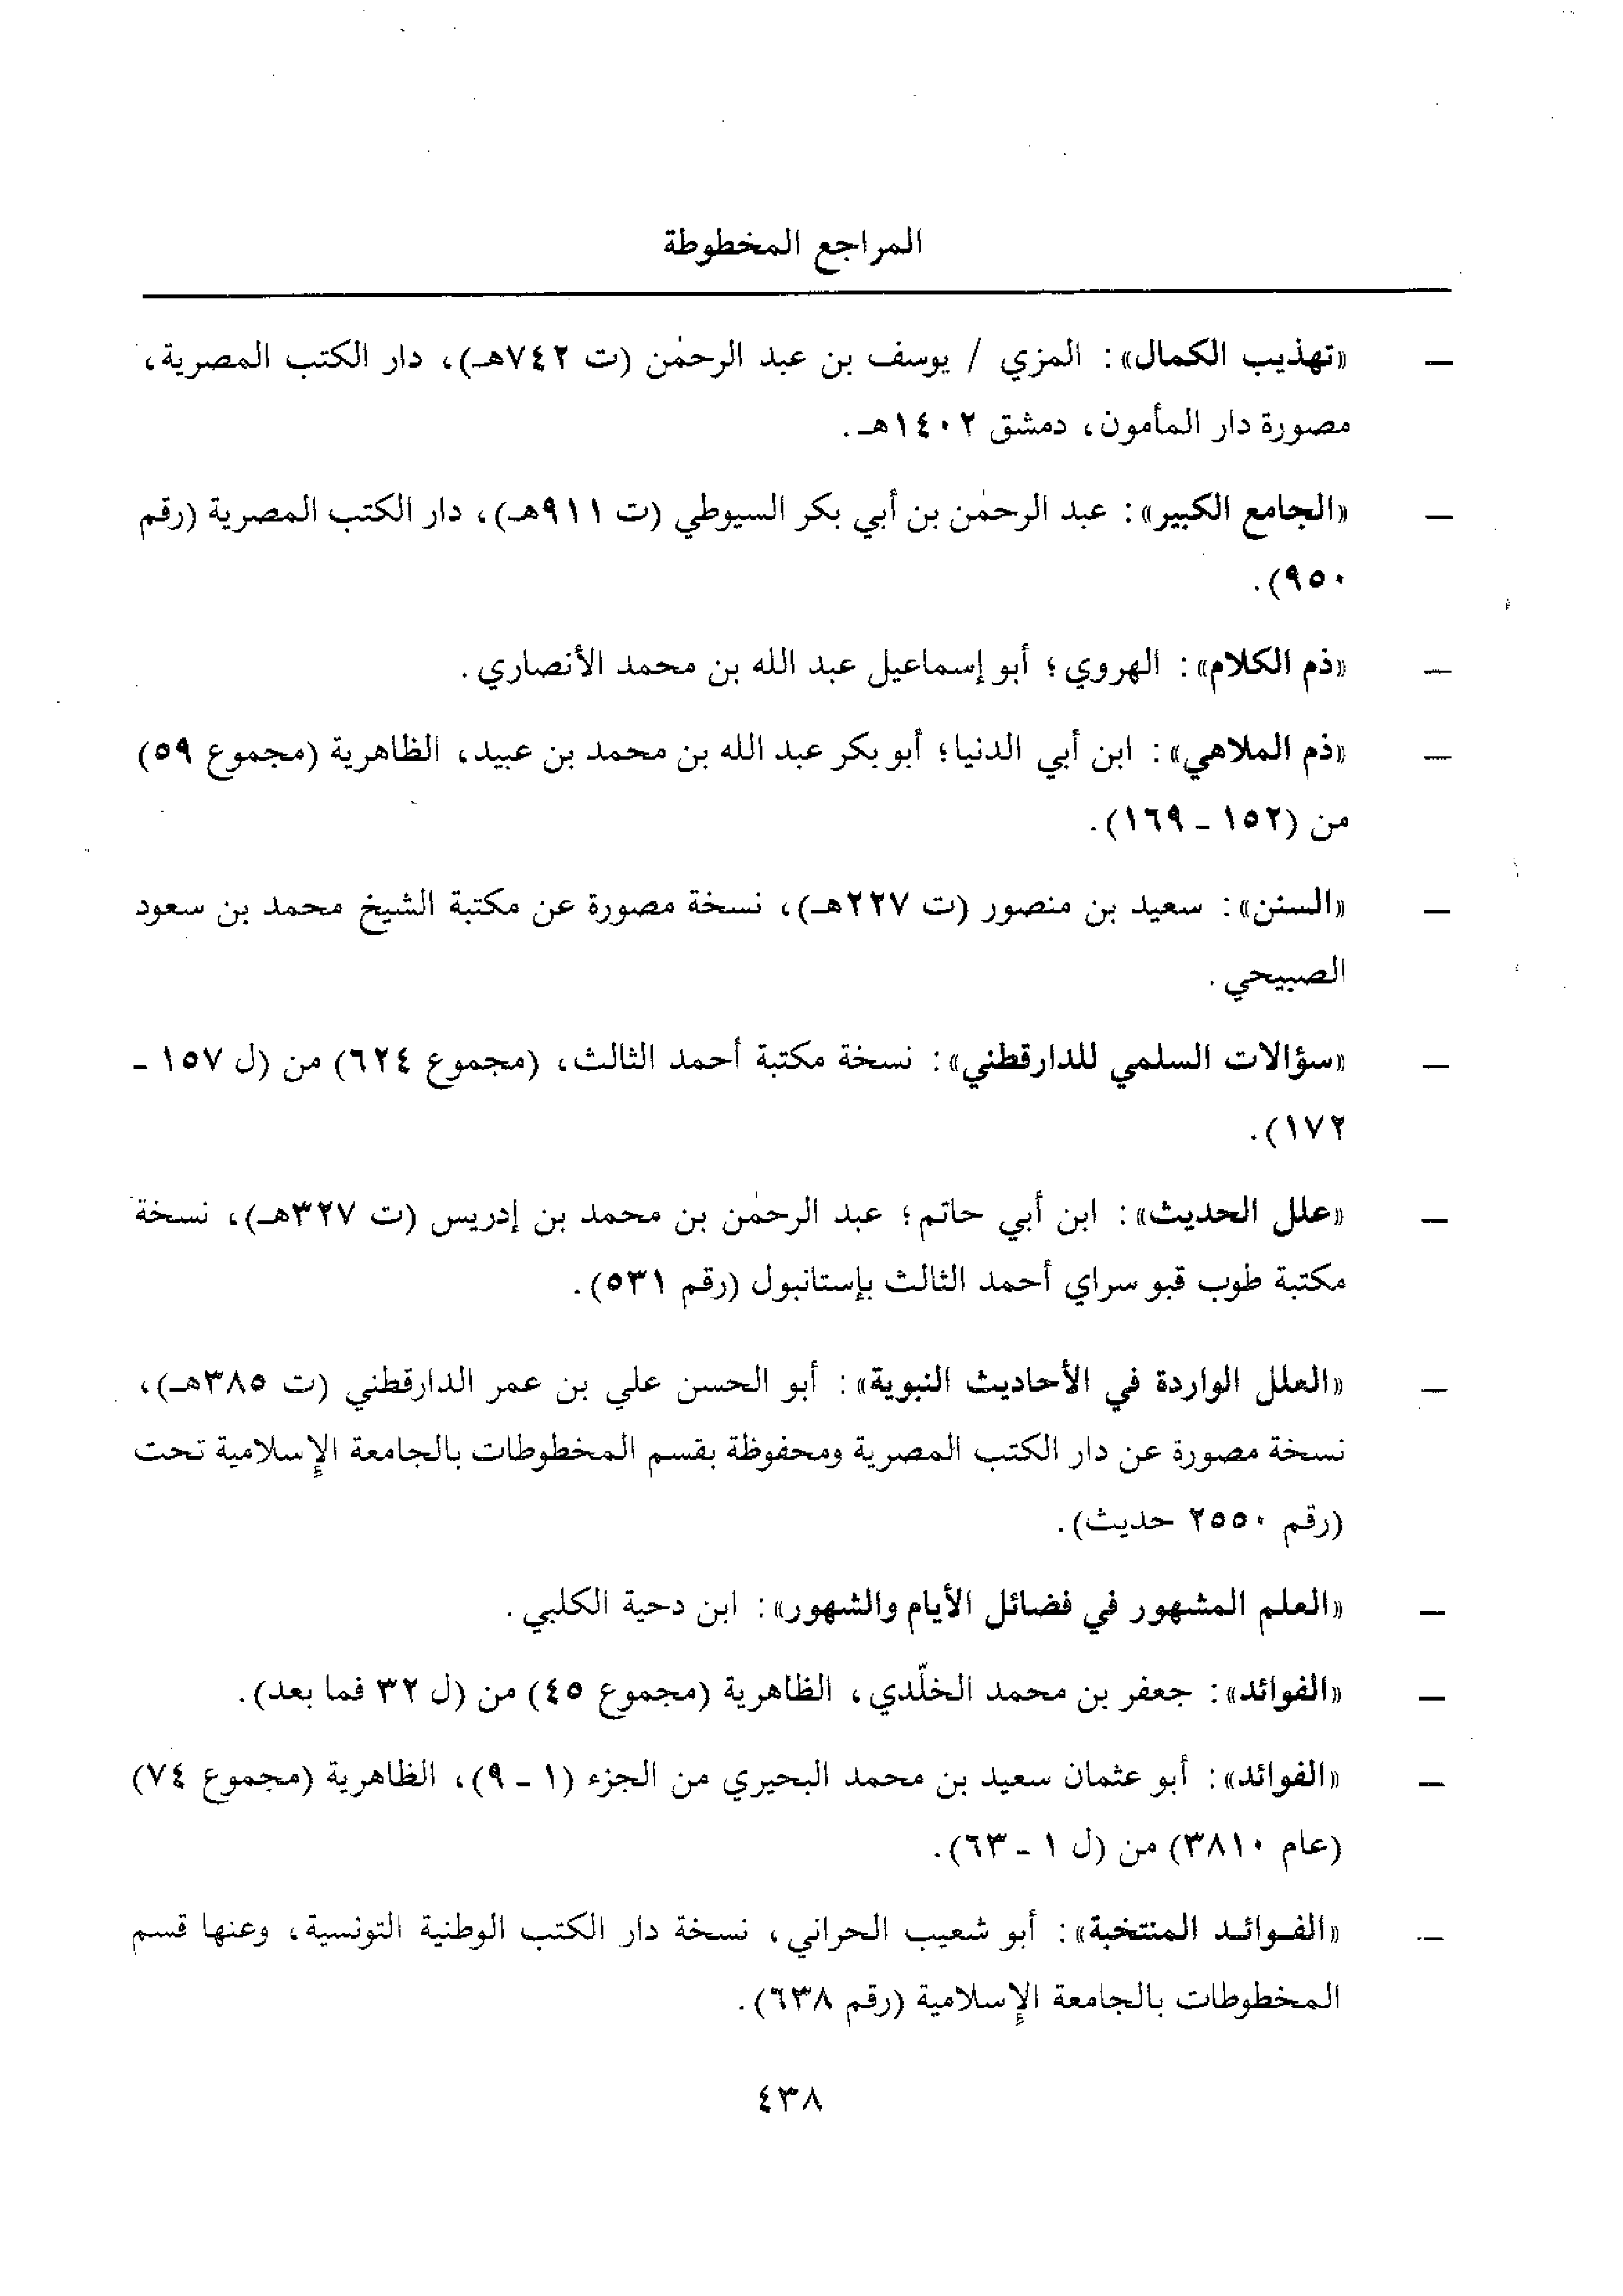 المراجع المخطوطة
— «تهذيب الكمال»: المزي / يوسف بن عبد الرحمٰن (ت ٧٤٢هـ)، دار الكتب المصرية،
مصورة دار المأمون، دمشق ١٤٠٢هـ.
— «الجامع الكبير»: عبد الرحمٰن بن أبي بكر السيوطي (ت ٩١١هـ)، دار الكتب المصرية (رقم
٩٥٠).
— «ذم الكلام»: الهروي؛ أبو إسماعيل عبد الله بن محمد الأنصاري.
— «ذم الملاهي»: ابن أبي الدنيا؛ أبو بكر عبد الله بن محمد بن عبيد، الظاهرية (مجموع ٥٩)
من (١٥٢ - ١٦٩).
— «السنن»: سعيد بن منصور (ت ٢٢٧هـ)، نسخة مصورة عن مكتبة الشيخ محمد بن سعود
الصبيحي.
— «سؤالات السلمي للدارقطني»: نسخة مكتبة أحمد الثالث، (مجموع ٦٢٤) من (ل ١٥٧ -
١٧٢).
— «علل الحديث»: ابن أبي حاتم؛ عبد الرحمٰن بن محمد بن إدريس (ت ٣٢٧هـ)، نسخة
مكتبة طوب قبو سراي أحمد الثالث بإستانبول (رقم ٥٣١).
— «العلل الواردة في الأحاديث النبوية»: أبو الحسن علي بن عمر الدارقطني (ت ٣٨٥هـ)،
نسخة مصورة عن دار الكتب المصرية ومحفوظة بقسم المخطوطات بالجامعة الإسلامية تحت
(رقم ٢٥٥٠ حديث).
— «العلم المشهور في فضائل الأيام والشهور»: ابن دحية الكلبي.
— «الفوائد»: جعفر بن محمد الخلّدي، الظاهرية (مجموع ٤٥) من (ل ٣٢ فما بعد).
— «الفوائد»: أبو عثمان سعيد بن محمد البحيري من الجزء (١ - ٩)، الظاهرية (مجموع ٧٤)
(عام ٣٨١٠) من (ل ١ - ٦٣).
— «الفـوائـد المنتخبة»: أبو شعيب الحراني، نسخة دار الكتب الوطنية التونسية، وعنها قسم
المخطوطات بالجامعة الإسلامية (رقم ٦٣٨).
٤٣٨